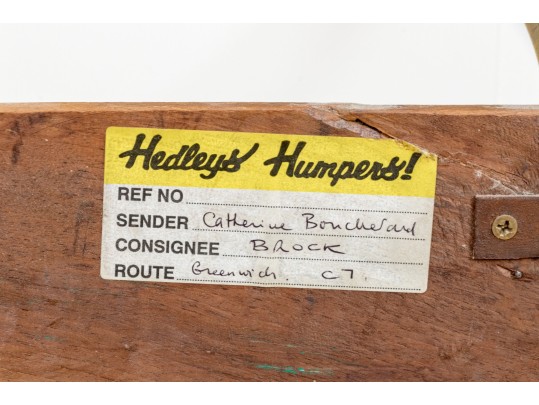 Hedleys Humpers!
REF NO
SENDER Catherine Bouchesard
CONSIGNEE BROCK
ROUTE Greenwich. CT.